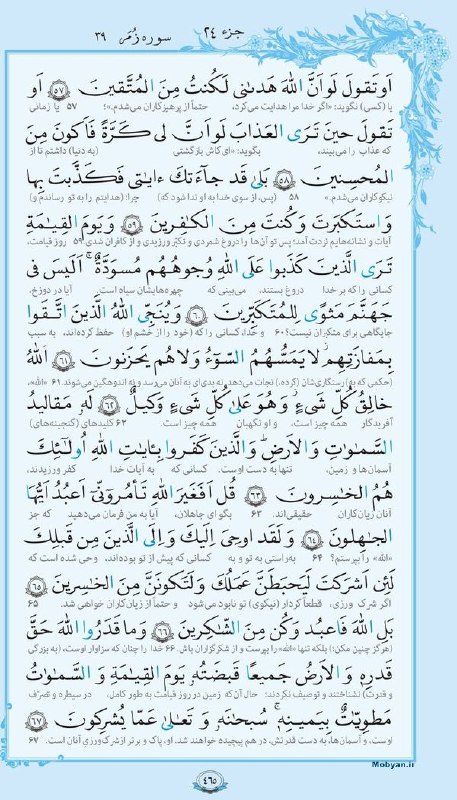 جزء ۲۴
سوره زُمَر ۳۹
اَوتَقولَ لَواَنَّ اللّٰهَ هَدىٰنى لَكُنتُ مِنَ المُتَّقينَ ﴿۵۷﴾ اَو
یا (کسی) نگوید: «اگر خدا مرا هدایت می‌کرد، حتماً از پرهیزکاران می‌شدم.»؛ ۵۷ یا زمانی
تَقولَ حينَ تَرَى العَذابَ لَواَنَّ لى كَرَّةً فَاَكونَ مِنَ
که عذاب را می‌بیند، بگوید: «ای‌کاش بازگشتی (به دنیا) داشتم تا از
المُحسِنينَ ﴿۵۸﴾ بَلىٰ قَد جآءَتكَ ءايٰتى فَكَذَّبتَ بِها
نیکوکاران می‌شدم.» ۵۸ (پس، از سوی خدا به او ندا شود که) چرا؛ (هدایتم را به تو رساندم و)
وَ استَكبَرتَ وَكُنتَ مِنَ الكٰفِرينَ ﴿۵۹﴾ وَيَومَ القِيٰمَةِ
آیات و نشانه‌هایم نزدت آمد؛ پس تو آن‌ها را دروغ شمردی و تکبّر ورزیدی و از کافران شدی. ۵۹ روز قیامت،
تَرَى الَّذينَ كَذَبوا عَلَى اللّٰهِ وُجوهُهُم مُسوَدَّةٌ ۚ اَلَيسَ فى
کسانی را که بر خدا دروغ بستند، می‌بینی که چهره‌هایشان سیاه است. آیا در دوزخ،
جَهَنَّمَ مَثوًى لِلمُتَكَبِّرينَ ﴿۶۰﴾ وَيُنَجِّى اللّٰهُ الَّذينَ اتَّقَوا
جایگاهی برای متکبران نیست؟ ۶۰ و خدا، کسانی را که (خود را از خشم او) حفظ کرده‌اند، به سبب
بِمَفازَتِهِم لا يَمَسُّهُمُ السّوٓءُ وَلا هُم يَحزَنونَ ﴿۶۱﴾ اَللّٰهُ
(حکمی که به) رستگاری‌شان (کرده،) نجات می‌دهد. نه بدی‌ای به آنان می‌رسد و نه اندوهگین می‌شوند. ۶۱ «الله»،
خالِقُ كُلِّ شَىءٍ ۖ وَهُوَ عَلىٰ كُلِّ شَىءٍ وَكيلٌ ﴿۶۲﴾ لَهُ مَقاليدُ
آفریدگار همه چیز است، و او نگهبان همه چیز است. ۶۲ کلیدهای (گنجینه‌های)
السَّمٰوٰتِ وَالاَرضِ ۗ وَالَّذينَ كَفَروا بِـٔايٰتِ اللّٰهِ اُولٰٓئِكَ
آسمان‌ها و زمین، تنها به دست اوست. کسانی که به آیات خدا کفر ورزیدند،
هُمُ الخٰسِرونَ ﴿۶۳﴾ قُل اَفَغَيرَ اللّٰهِ تَأمُرونّى اَعبُدُ اَيُّهَا
آنان زیان‌کاران حقیقی‌اند. ۶۳ بگو ای جاهلان، آیا به من فرمان می‌دهید که جز
الجٰهِلونَ ﴿۶۴﴾ وَ لَقَد اوحِىَ اِلَيكَ وَ اِلَى الَّذينَ مِن قَبلِكَ
«الله» را بپرستم؟ ۶۴ به‌راستی به تو و به کسانی که پیش از تو بوده‌اند، وحی شده است که
لَئِن اَشرَكتَ لَيَحبَطَنَّ عَمَلُكَ وَ لَتَكونَنَّ مِنَ الخٰسِرينَ ﴿۶۵﴾
اگر شرک ورزی، قطعاً کردار (نیکوی) تو نابود می‌شود و حتماً از زیان‌کاران خواهی شد. ۶۵
بَلِ اللّٰهَ فَاعبُد وَكُن مِنَ الشّاكِرينَ ﴿۶۶﴾ وَما قَدَرُوا اللّٰهَ حَقَّ
(هرگز چنین مکن؛) بلکه تنها «الله» را بپرست و از شکرگزاران باش. ۶۶ خدا را چنان که سزاوار اوست، (به بزرگی
قَدرِهِ وَ الاَرضُ جَميعًا قَبضَتُهُ يَومَ القِيٰمَةِ وَ السَّمٰوٰتُ
و قدرت) نشناختند و توصیف نکردند؛ حال آن‌که زمین در روز قیامت به طور کامل، در سیطره و تصرّف
مَطوِيّٰتٌ بِيَمينِهِ ۚ سُبحٰنَهُ وَ تَعٰلىٰ عَمّا يُشرِكونَ ﴿۶۷﴾
اوست، و آسمان‌ها، به دست قدرتش، در هم پیچیده خواهند شد. او، پاک و برتر از شرک‌ورزیِ آنان است. ۶۷
۴۶۵
Mobyan.ir